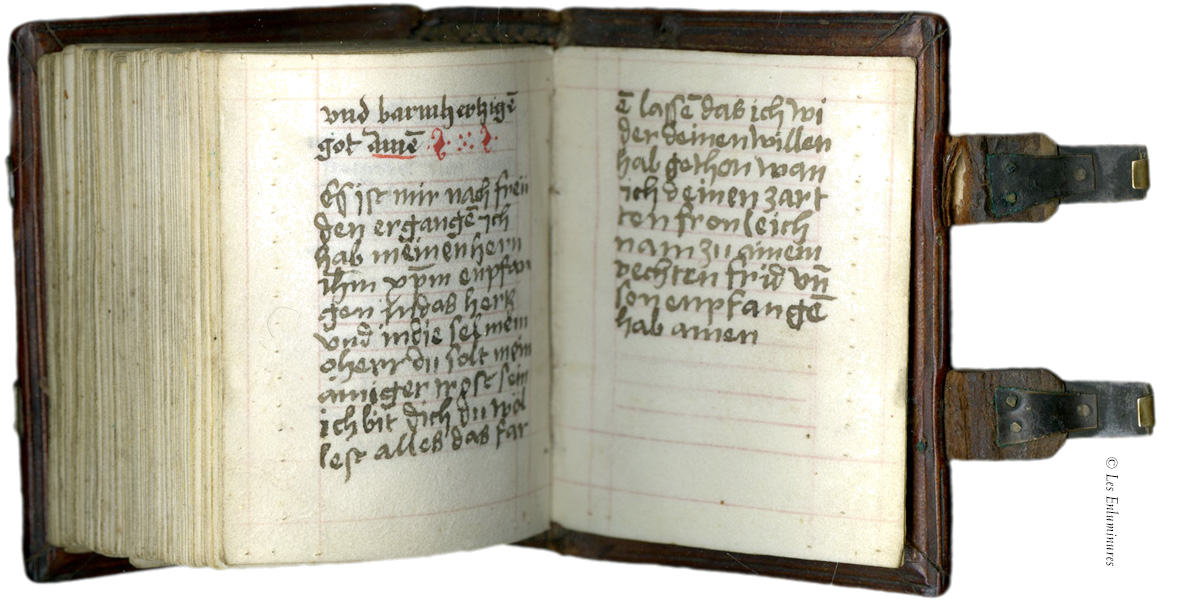 vnd barmhertzigē
got amē
Es ist mir nach freu
den ergangē ich
hab meinen hern
ihm xpm enpfan
gen in das hertz
vnd in die sel mein
o herr du solt mein
ainiger trost sein
ich bit dich du wol
lest alles das far
ē lassē das ich wi
der deinen willen
hab gethon wan
ich deinen zart
ten fronleich
nam zu ainem
rechten frid vn̄
son enpfangē
hab amen
© Les Enluminures